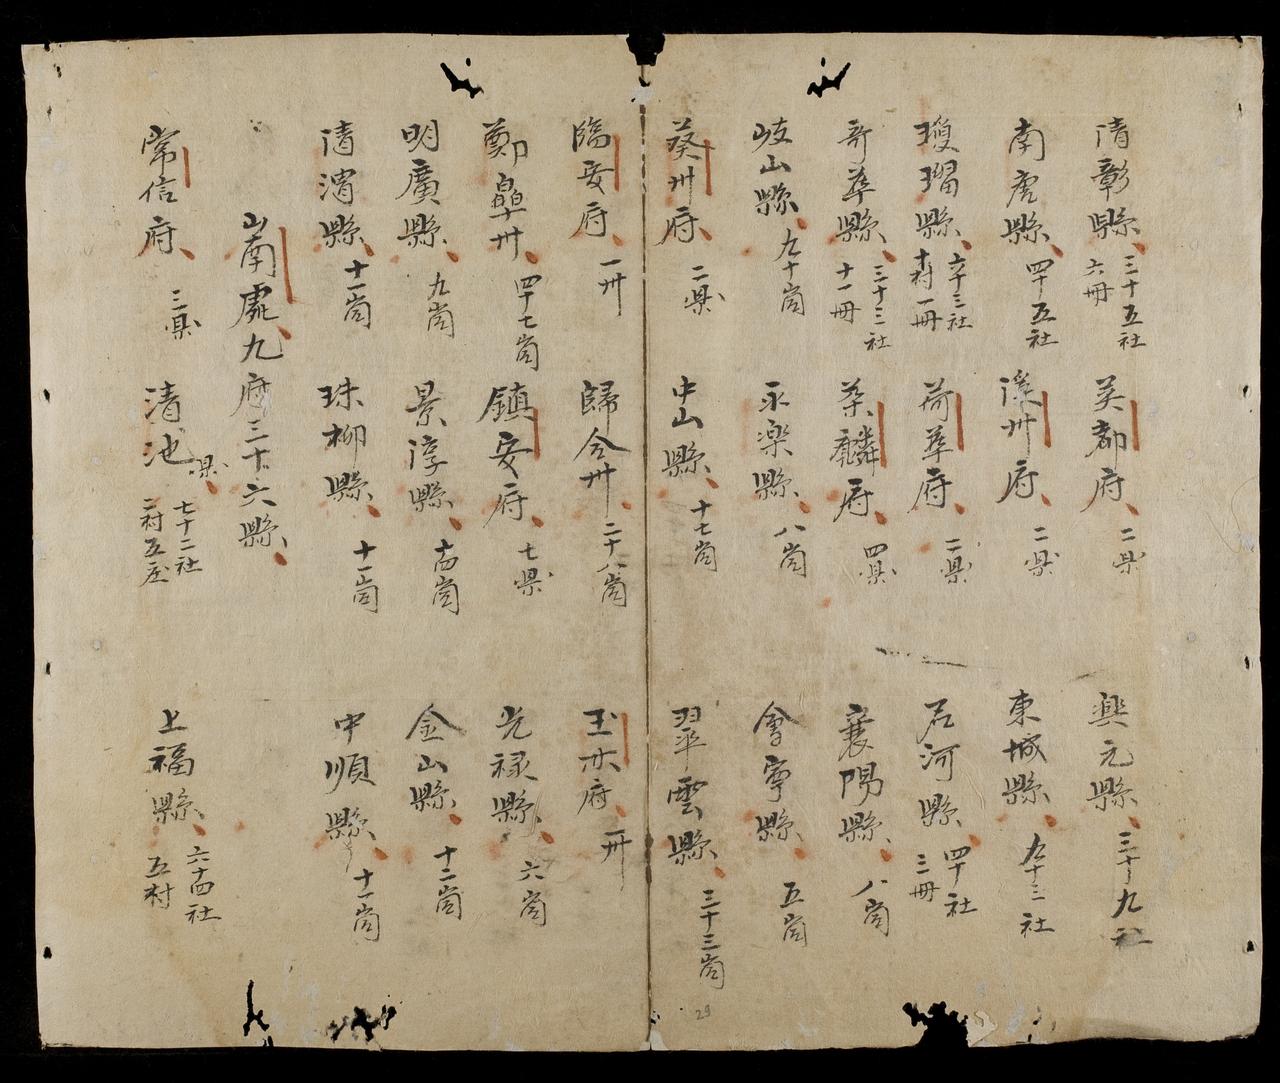 清彰縣 三十五社 六冊
英都府 二県
興元縣 三十九社
南虎縣 四十五社
演州府 二県
東城縣 九十三社
瓊瑠縣 六十三社 十村一冊
荷華府 二県
石河縣 四十社 三冊
奇華縣 三十三社 十一冊
葵麟府 四県
襄陽縣 八峝
岐山縣 九十峝
永楽縣 八峝
會寧縣 五峝
葵州府 二県
中山縣 十七峝
翠雲縣 三十三峝
臨安府 一州
歸合州 二十八峝
玉亦府 一州
鄭皐州 四十七峝
鎮安府 七県
光禄縣 六峝
明廣縣 九峝
景淳縣 十四峝
金山縣 十二峝
清渭縣 十一峝
珠柳縣 十一峝
中順縣 十一峝
山南處九府三十六縣
常信府 三県
清池県 七十二社 一村五庄
上福縣 六十四社 五村
29